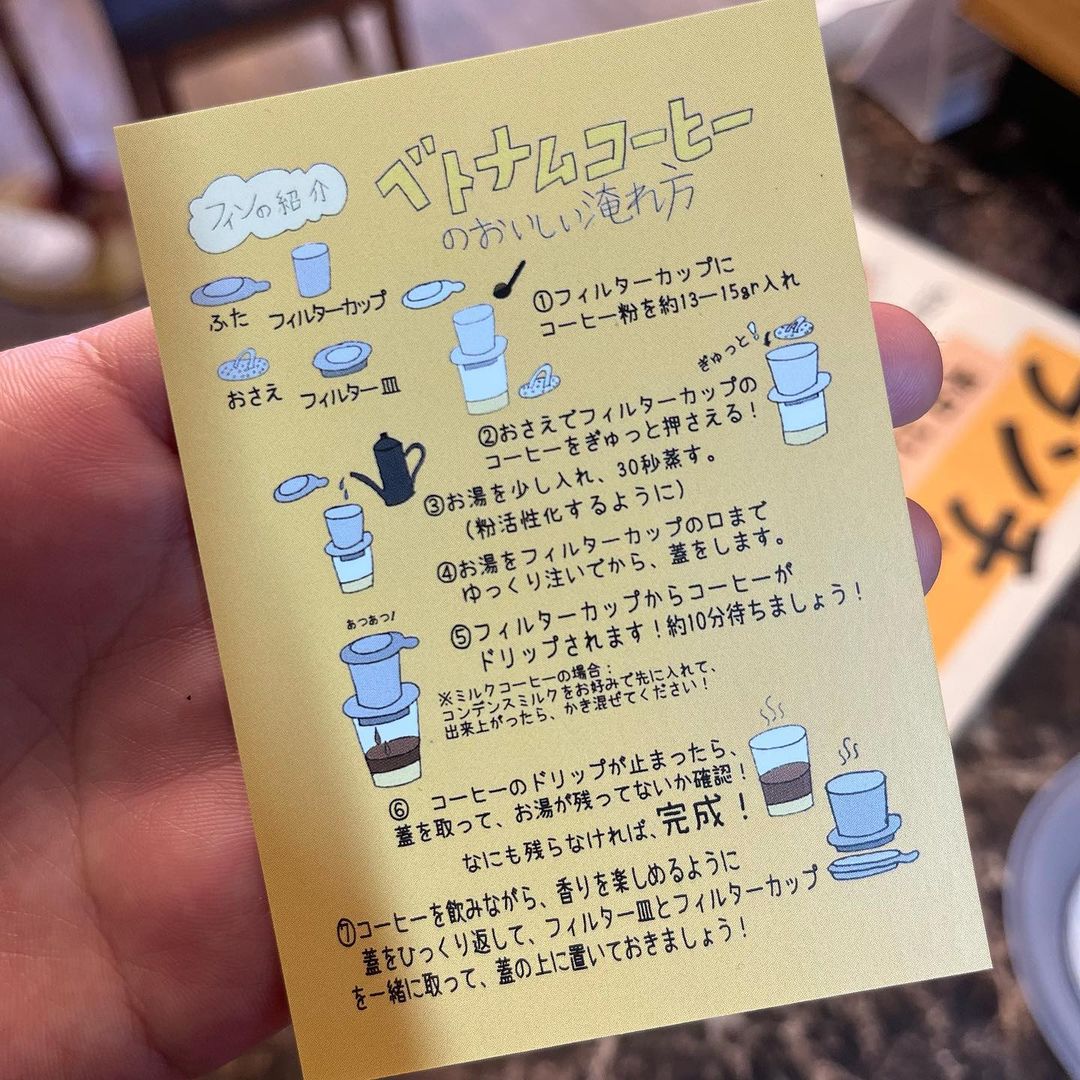 ベトナムコーヒー
のおいしい淹れ方
フィンの紹介
ふた
フィルターカップ
おさえ
フィルター皿
①フィルターカップに
コーヒー粉を約13ー15gr入れ
ぎゅっと!
②おさえでフィルターカップの
コーヒーをぎゅっと押さえる！
③お湯を少し入れ、30秒蒸す。
（粉活性化するように）
④お湯をフィルターカップの口まで
ゆっくり注いでから、蓋をします。
あつあつ!
⑤フィルターカップからコーヒーが
ドリップされます！約10分待ちましょう！
※ミルクコーヒーの場合：
コンデンスミルクをお好みで先に入れて、
出来上がったら、かき混ぜてください！
⑥ コーヒーのドリップが止まったら、
蓋を取って、お湯が残ってないか確認！
なにも残らなければ、完成！
⑦コーヒーを飲みながら、香りを楽しめるように
蓋をひっくり返して、フィルター皿とフィルターカップ
を一緒に取って、蓋の上に置いておきましょう！
ランチ